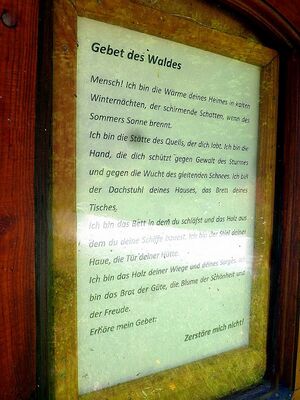 Gebet des Waldes
Mensch! Ich bin die Wärme deines Heimes in kalten
Winternächten, der schirmende Schatten, wenn des
Sommers Sonne brennt.
Ich bin die Stätte des Quells, der dich labt. Ich bin die
Hand, die dich schützt gegen Gewalt des Sturmes
und gegen die Wucht des gleitenden Schnees. Ich bin
der Dachstuhl deines Hauses, das Brett deines
Tisches,
Ich bin das Bett in dem du schläfst und das Holz aus
dem du deine Schiffe baust. Ich bin der Stiel deiner
Haue, die Tür deiner Hütte.
Ich bin das Holz deiner Wiege und deines Sarges. Ich
bin das Brot der Güte, die Blume der Schönheit und
der Freude.
Erhöre mein Gebet:
Zerstöre mich nicht!